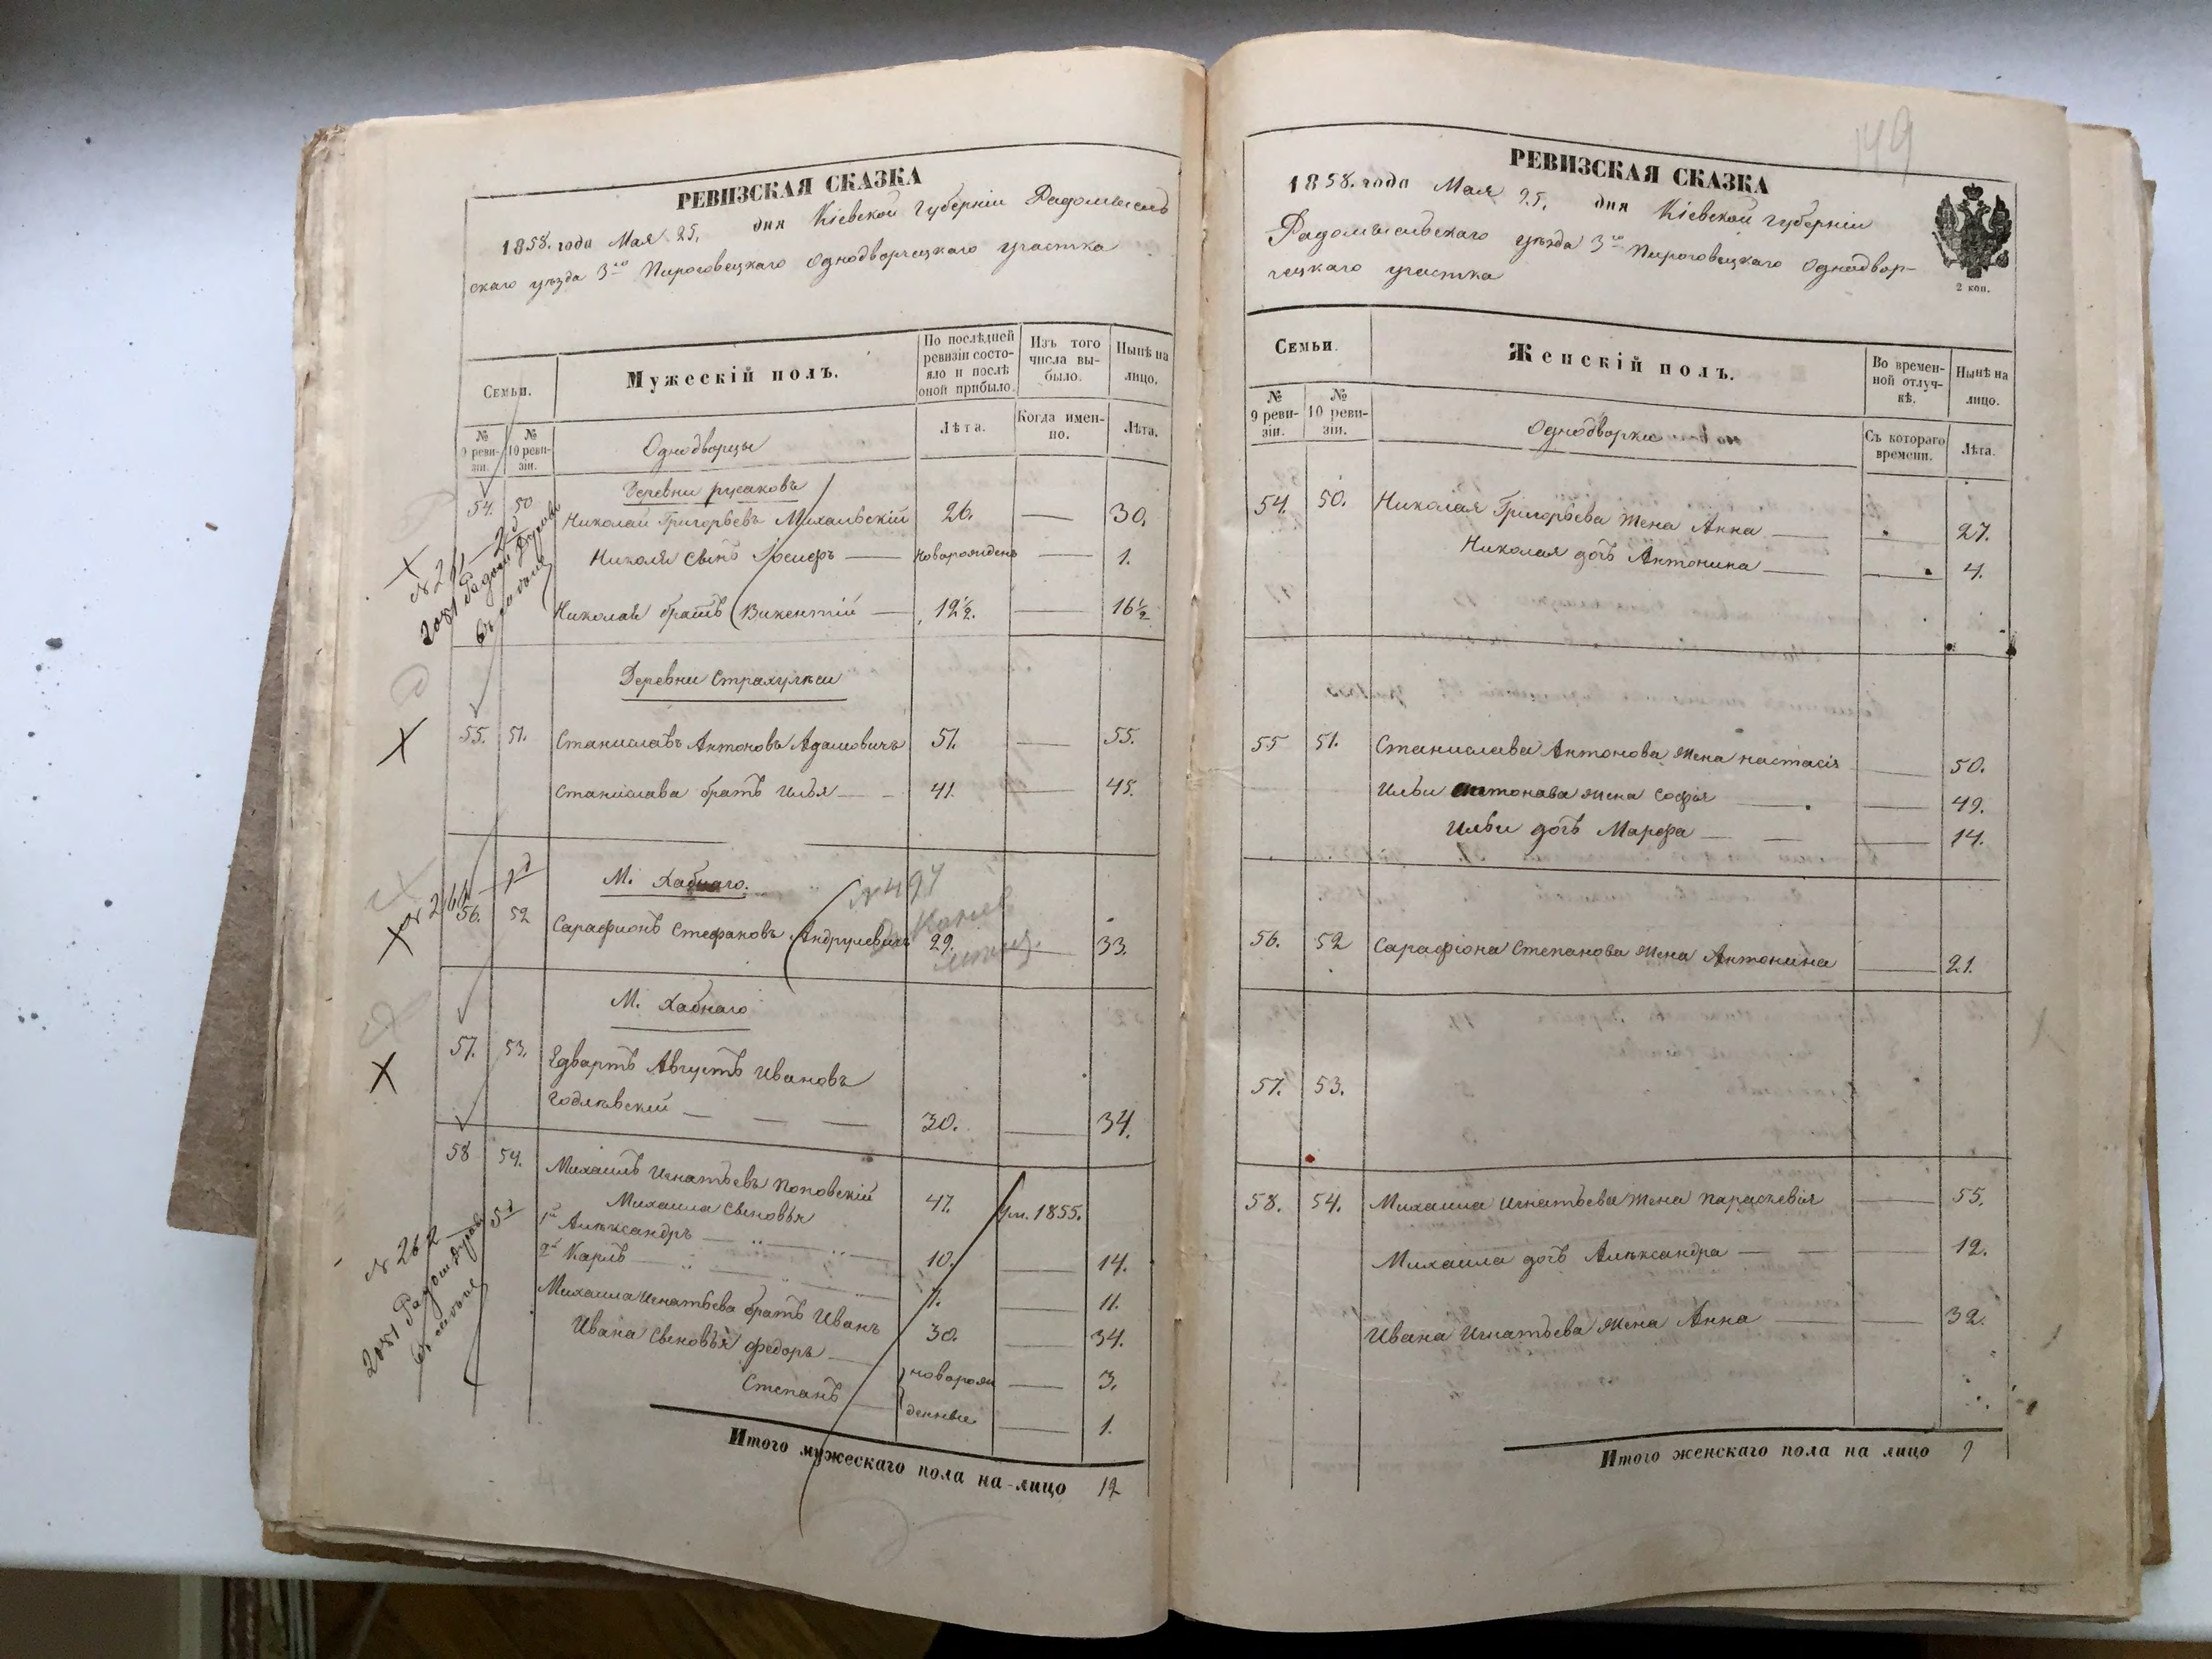 РЕВИЗСКАЯ СКАЗКА
1858. года Мая 25, дня Кіевской Губерніи Радомысль
скаго уѣзда 3го Пироговецкаго Однодворческаго участка
Семьи.
Мужескій полъ.
По послѣдней ревизіи состояло и послѣ оной прибыло.
Изъ того числа выбыло.
Нынѣ на лицо.
№ 9 ревизіи.
№ 10 ревизіи.
Однодворцы
Лѣта.
Когда именно.
Лѣта.
Деревни русаковъ
54. 50 Николай Григорьевъ Михальскій 26. — 30.
Николая сынъ Іосифъ — новорожденъ — 1.
Николая братъ Викентій — 12½. — 16½
Деревни Страхулѣси
55. 51. Станиславъ Антоновъ Адамовичъ 51. — 55.
Станислава братъ Илья — 41. — 45.
М. Хабнаго.
№ 497
56. 52 Сарафионъ Стефановъ Андрулевичъ 29. — 33.
М. Хабнаго
57. 53. Едвартъ Августъ Ивановъ
Годлѣвскій — — — 30. — 34.
58 54. Михаилъ Игнатьевъ Поповскій 47. Ум. 1855.
Михаила сыновья
1й Алѣксандръ — 10. — 14.
2й Карлъ — 7. — 11.
Михаила Игнатьева братъ Иванъ 30. — 34.
Ивана сыновья федоръ — новорож — 3.
Степанъ — денные — 1.
№ 262
Итого мужескаго пола на-лицо 12
149
РЕВИЗСКАЯ СКАЗКА
1858. года Мая 25, дня Кіевской Губерніи
Радомысльскаго уѣзда 3го Пироговецкаго Однодвор-
ческаго участка
2 коп.
Семьи.
Женскій полъ.
Во временной отлучкѣ.
Нынѣ на лицо.
№ 9 ревизіи.
№ 10 ревизіи.
Однодворки
Съ котораго времени.
Лѣта.
54. 50. Николая Григорьева жена Анна — 27.
Николая дочь Антонина — 4.
55 51. Станислава Антонова жена настасія — 50.
Ильи Антонава жена Софія — — 49.
Ильи дочь Марфа — — 14.
56. 52 Сарафіона Степанова жена Антонина — 21.
57. 53.
58. 54. Михаила Игнатьева жена Параскевія — 55.
Михаила дочь Алѣксандра — — 12.
Ивана Игнатьева жена Анна — — 32.
Итого женскаго пола на лицо 9